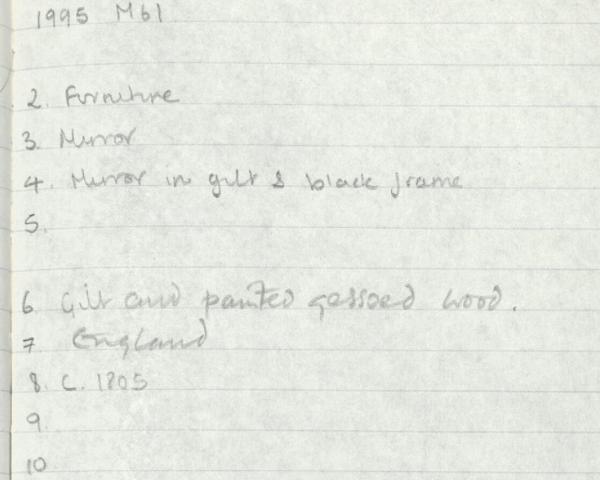 1995 M61
2. Furniture
3. Mirror
4. Mirror in gilt & black frame
5.
6 Gilt and painted gessoed wood.
7 England
8. c. 1805
9.
10